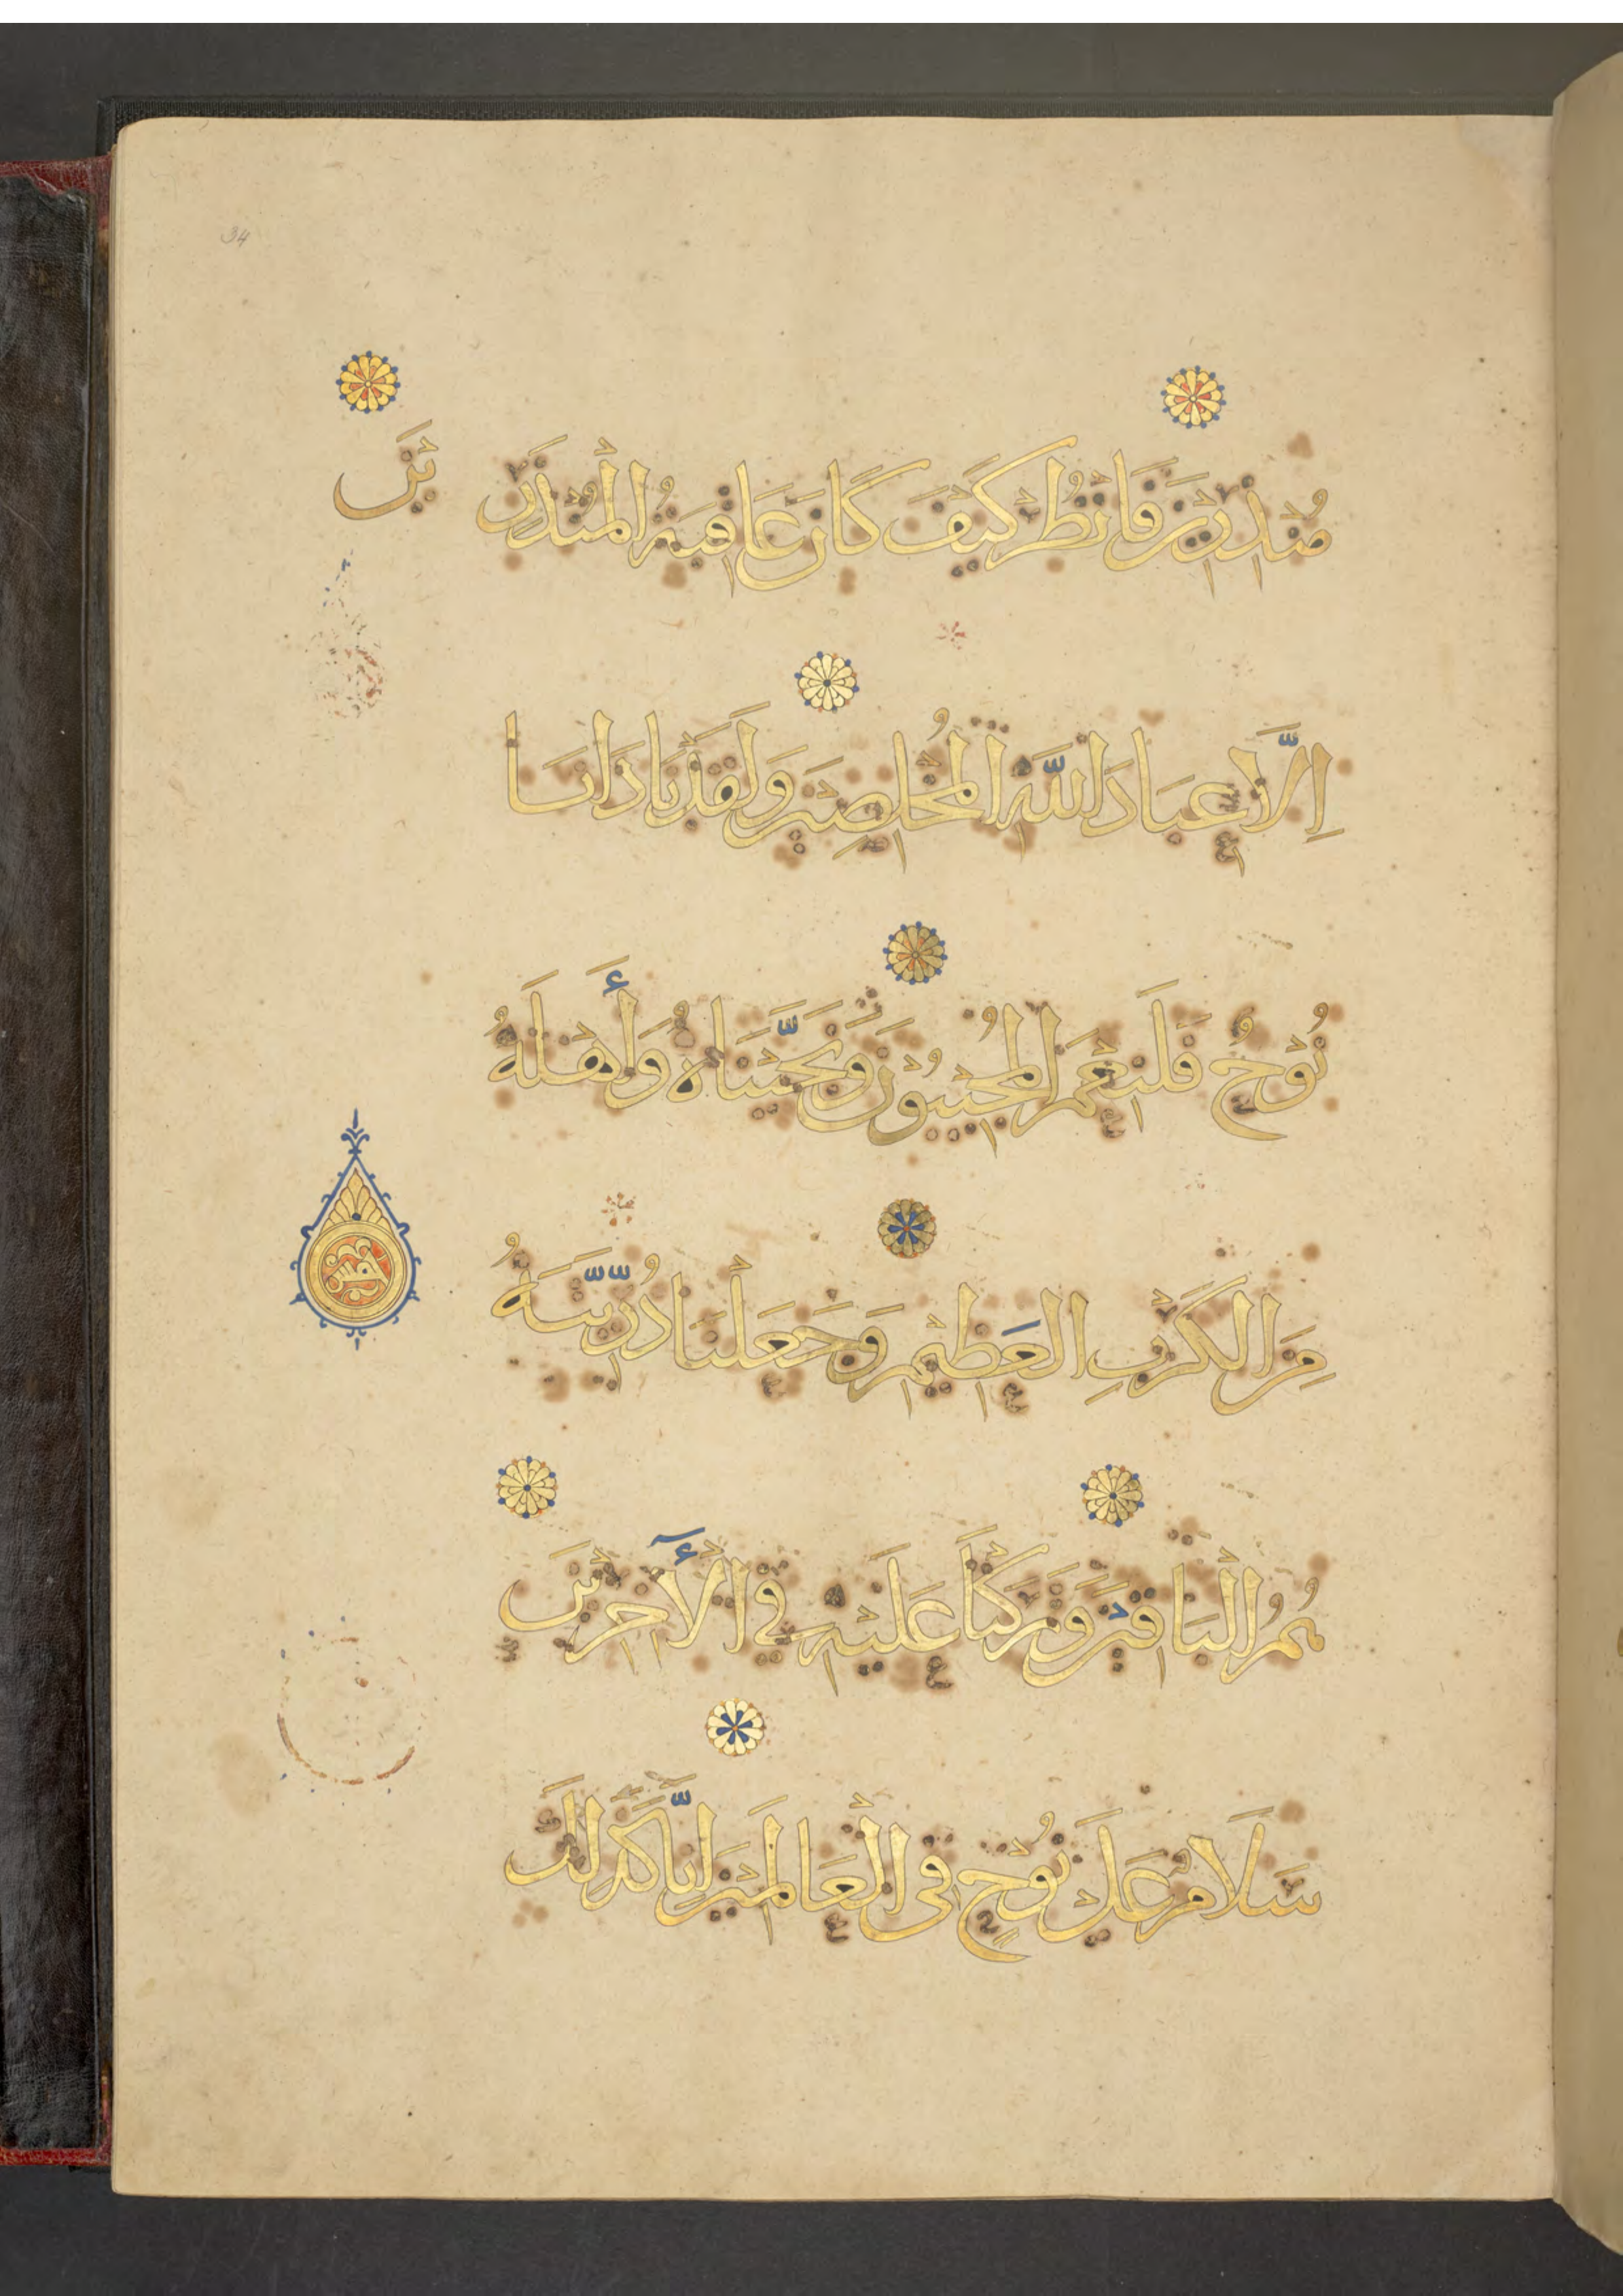 34
مُنْذِرِينَ فَانْظُرْ كَيْفَ كَانَ عَاقِبَةُ الْمُنْذَرِينَ
إِلَّا عِبَادَ اللَّهِ الْمُخْلَصِينَ وَلَقَدْ نَادَانَا
نُوحٌ فَلَنِعْمَ الْمُجِيبُونَ وَنَجَّيْنَاهُ وَأَهْلَهُ
مِنَ الْكَرْبِ الْعَظِيمِ وَجَعَلْنَا ذُرِّيَّتَهُ
هُمُ الْبَاقِينَ وَتَرَكْنَا عَلَيْهِ فِي الْآخِرِينَ
سَلَامٌ عَلَى نُوحٍ فِي الْعَالَمِينَ إِنَّا كَذَلِكَ